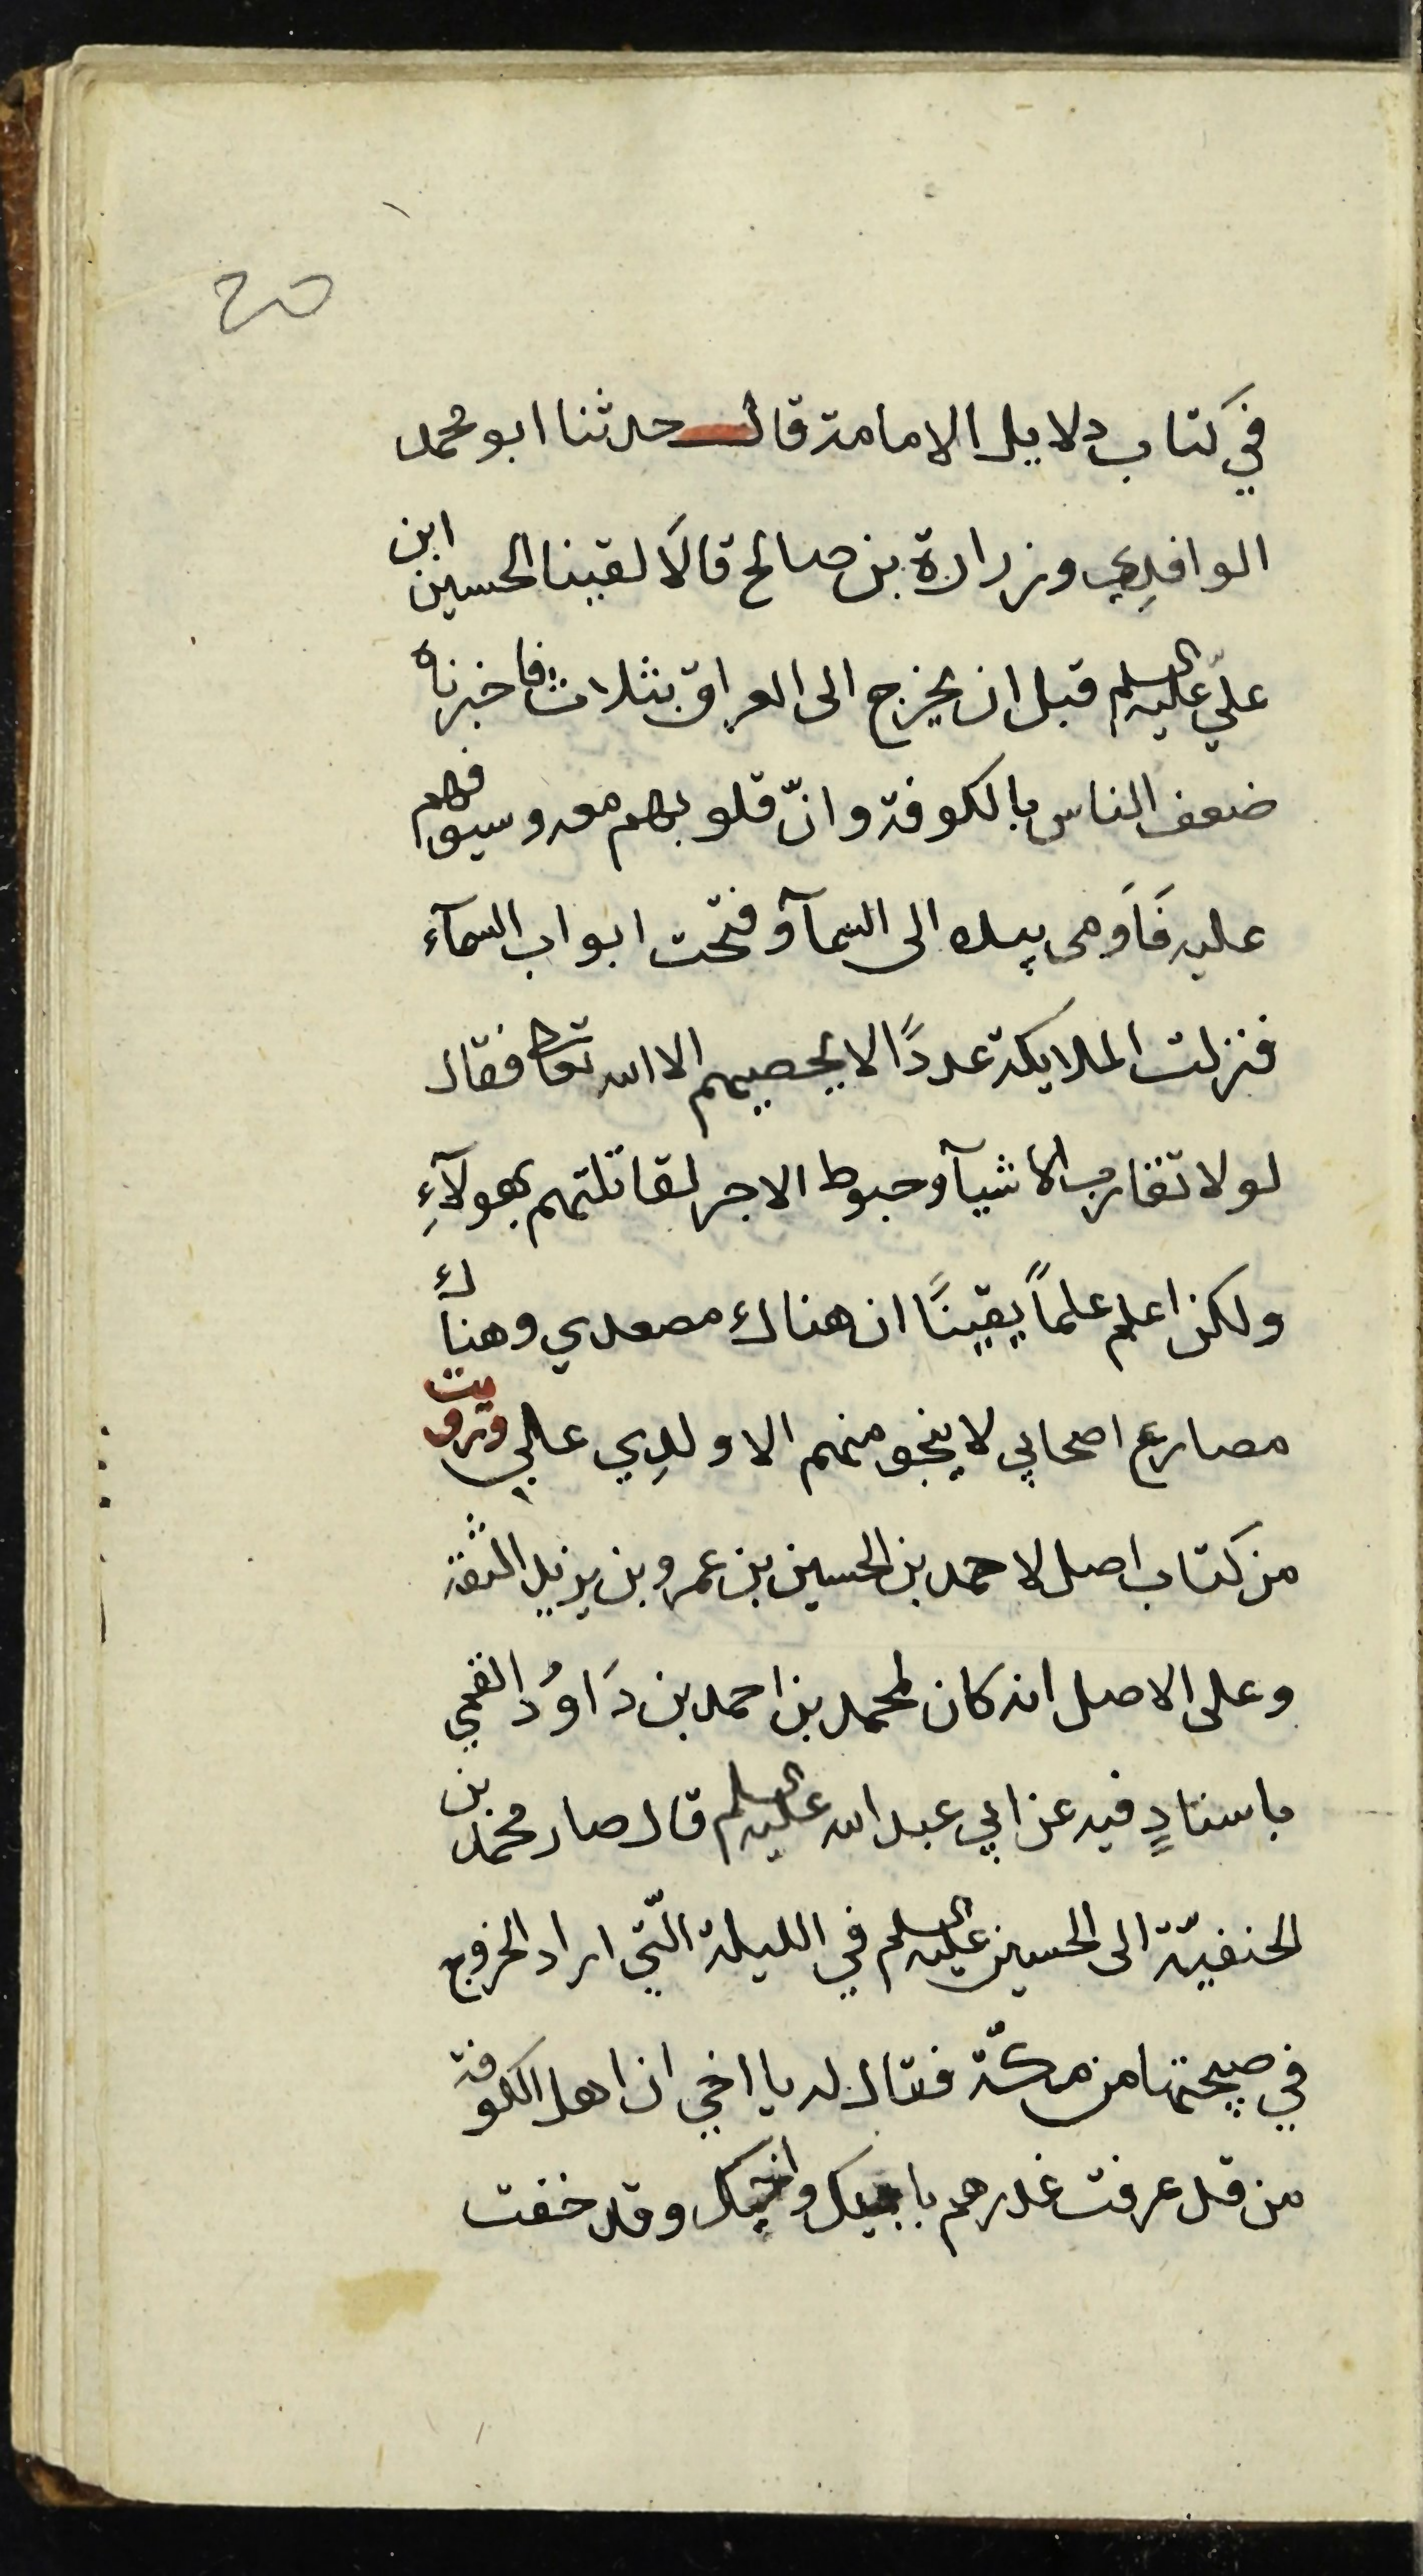 20
في كتاب دلايل الامامة قال حدثنا ابو محمد
الوافدي وزرارة بن صالح قالا لقينا الحسين ابن
عليّ عليه السلم قبل ان يخرج الى العراق بثلاث فاخبرناه
ضعف الناس بالكوفة وانّ قلوبهم معه وسيوفهم
عليه فَاَومى بيده الى السمآ وفتحت ابواب السمآء
فنزلت الملايكة عددًا لا يحصيهم الا الله تعالى فقال
لولا تقارب الاشيآ وحبوط الاجر لقاتلتهم بهولآءِ
ولكن اعلم علماً يقينًا ان هناك مصعدي وهناك
مصارع اصحابي لا ينجو منهم الا ولدِي علي ورويت
من كتاب اصل لاحمد بن الحسين بن عمرو بن يزيد الثقة
وعلى الاصل انه كان لمحمد بن احمد بن دَاوُد القمي
باسنادٍ فيه عن ابي عبد الله عليه السلم قال صار محمد بن
الحنفيّة الى الحسين عليه السلم في الليلة الّتي اراد الخروج
في صبيحتها من مكّة فقال له يا اخي ان اهل الكوفة
من قد عرفت غدرهم بابيك واخيك وقد خفت